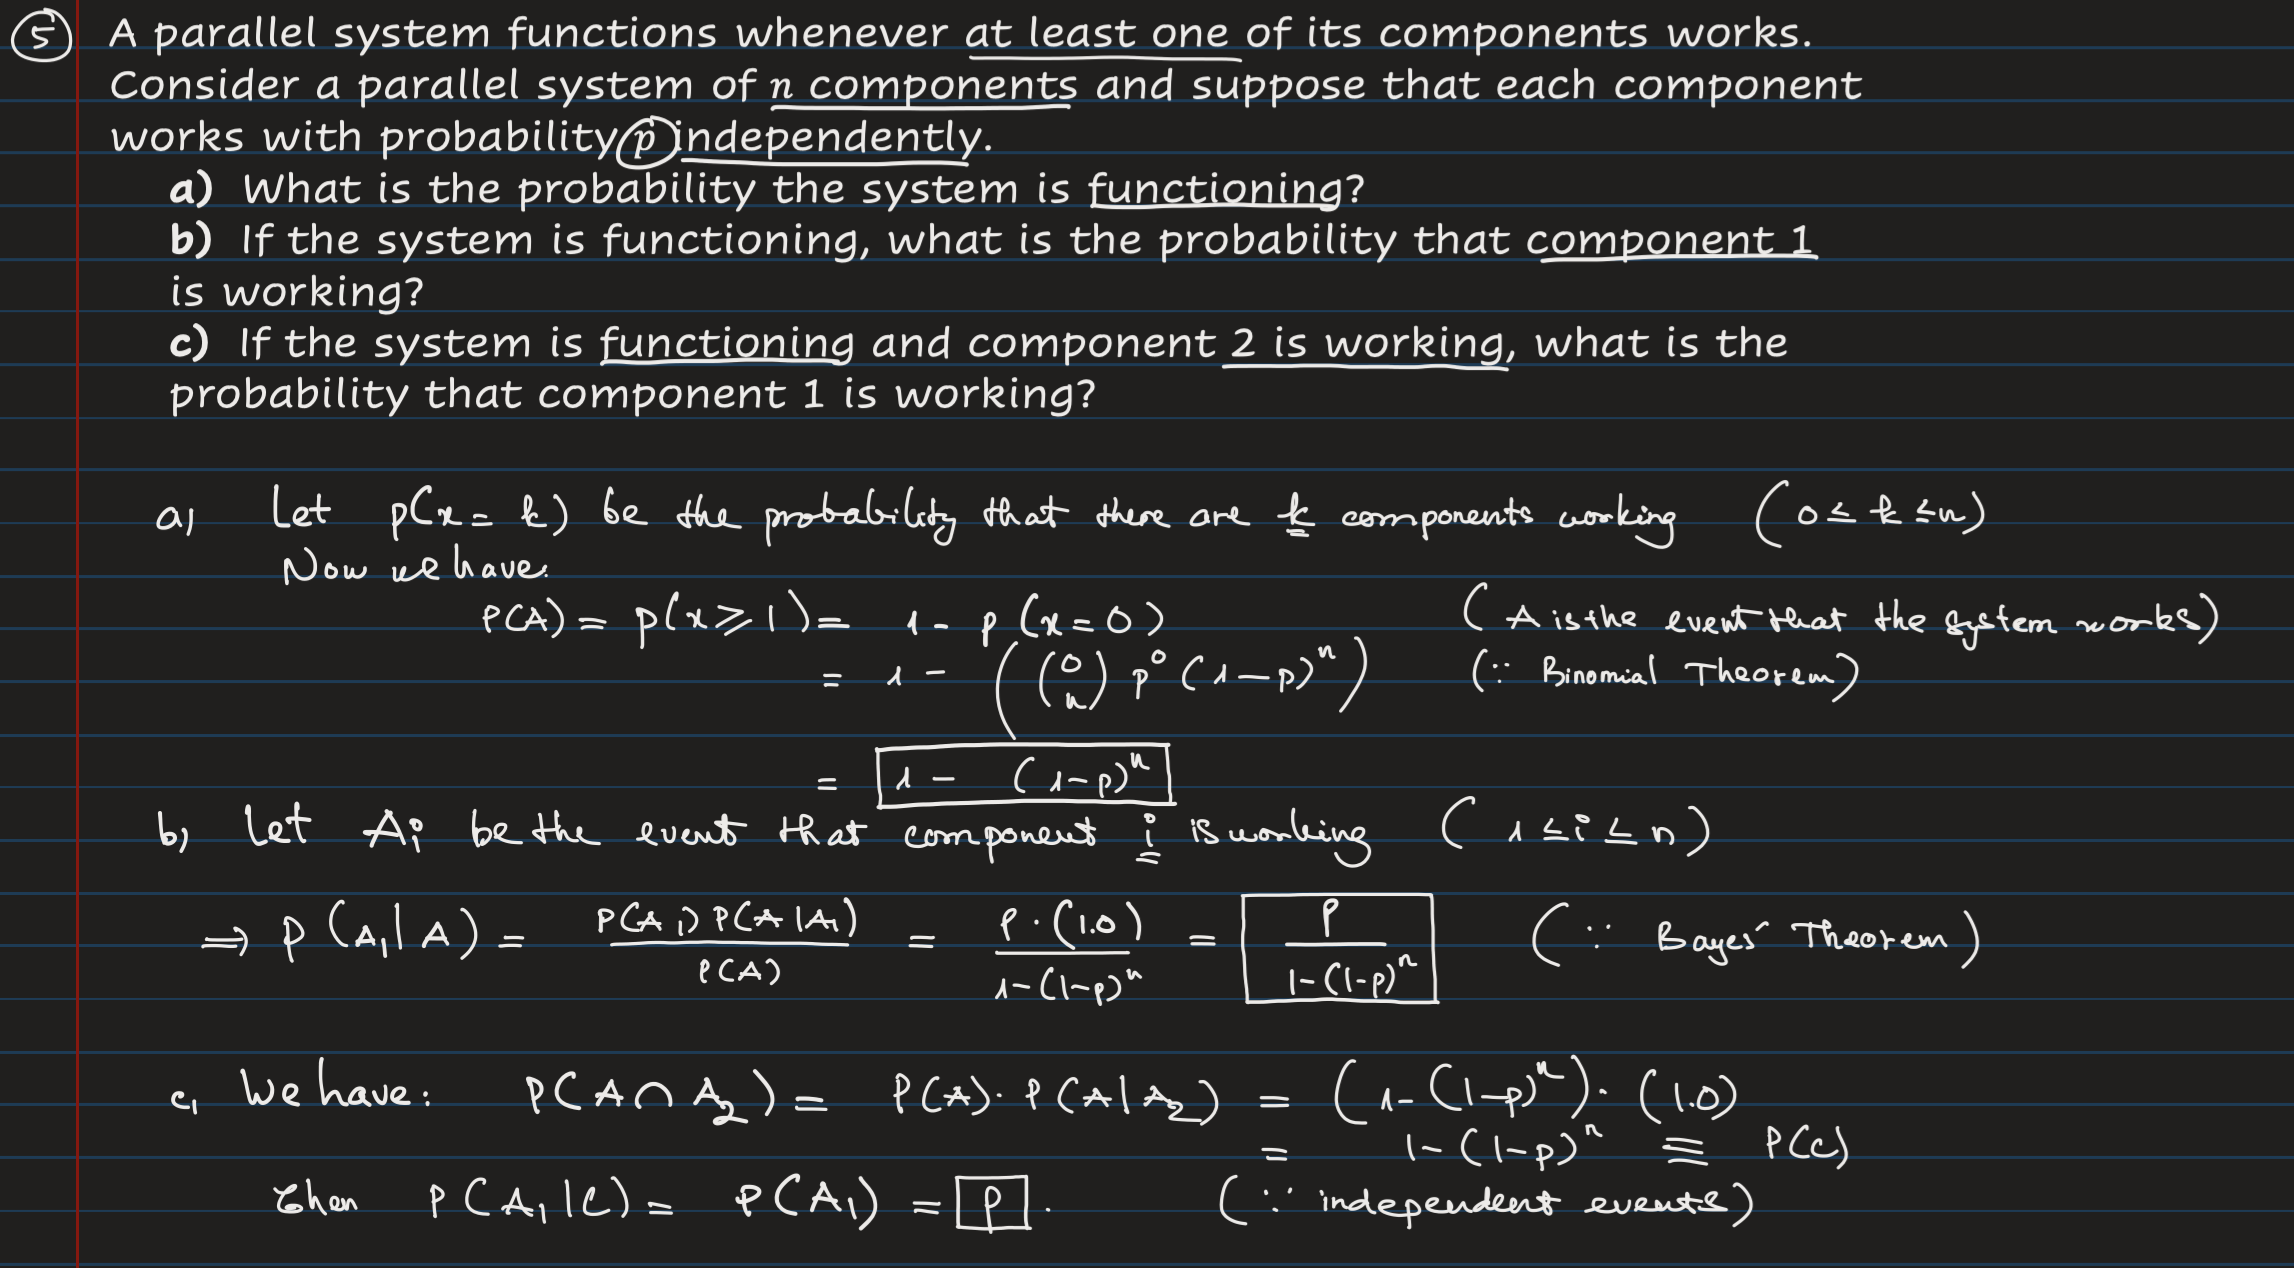 ⑤ A parallel system functions whenever at least one of its components works.
Consider a parallel system of n components and suppose that each component
works with probability p independently.
a) What is the probability the system is functioning?
b) If the system is functioning, what is the probability that component 1
is working?
c) If the system is functioning and component 2 is working, what is the
probability that component 1 is working?
a) Let p(x = k) be the probability that there are k components working (0 ≤ k ≤ n)
Now we have:
P(A) = p(x ⩾ 1) = 1 - p(x = 0) (A is the event that the system works)
= 1 - ( (0 n) p⁰ (1-p)ⁿ ) (∵ Binomial Theorem)
= 1 - (1-p)ⁿ
b) Let Aᵢ be the event that component i is working (1 ≤ i ≤ n)
⇒ P(A₁|A) = P(A₁) P(A|A₁) / P(A) = p·(1.0) / 1-(1-p)ⁿ = p / 1-(1-p)ⁿ (∵ Bayes' Theorem)
c) We have: P(A ∩ A₂) = P(A)·P(A|A₂) = (1-(1-p)ⁿ)·(1.0)
= 1-(1-p)ⁿ ≡ P(C)
Then P(A₁|C) = P(A₁) = p. (∵ independent events)